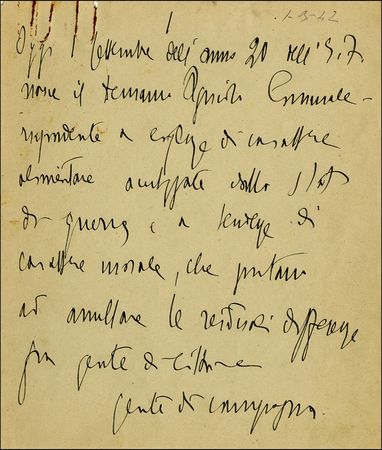 1-9-42
Oggi 1 settembre dell'anno 20 dell'E.F.
nasce il demanio Agricolo Comunale
rispondente a esigenze di carattere
alimentare acutizzate dallo stato
di guerra e a tendenze di
carattere morale, che portano
ad annullare le residuali differenze
fra gente di città e
gente di campagna.